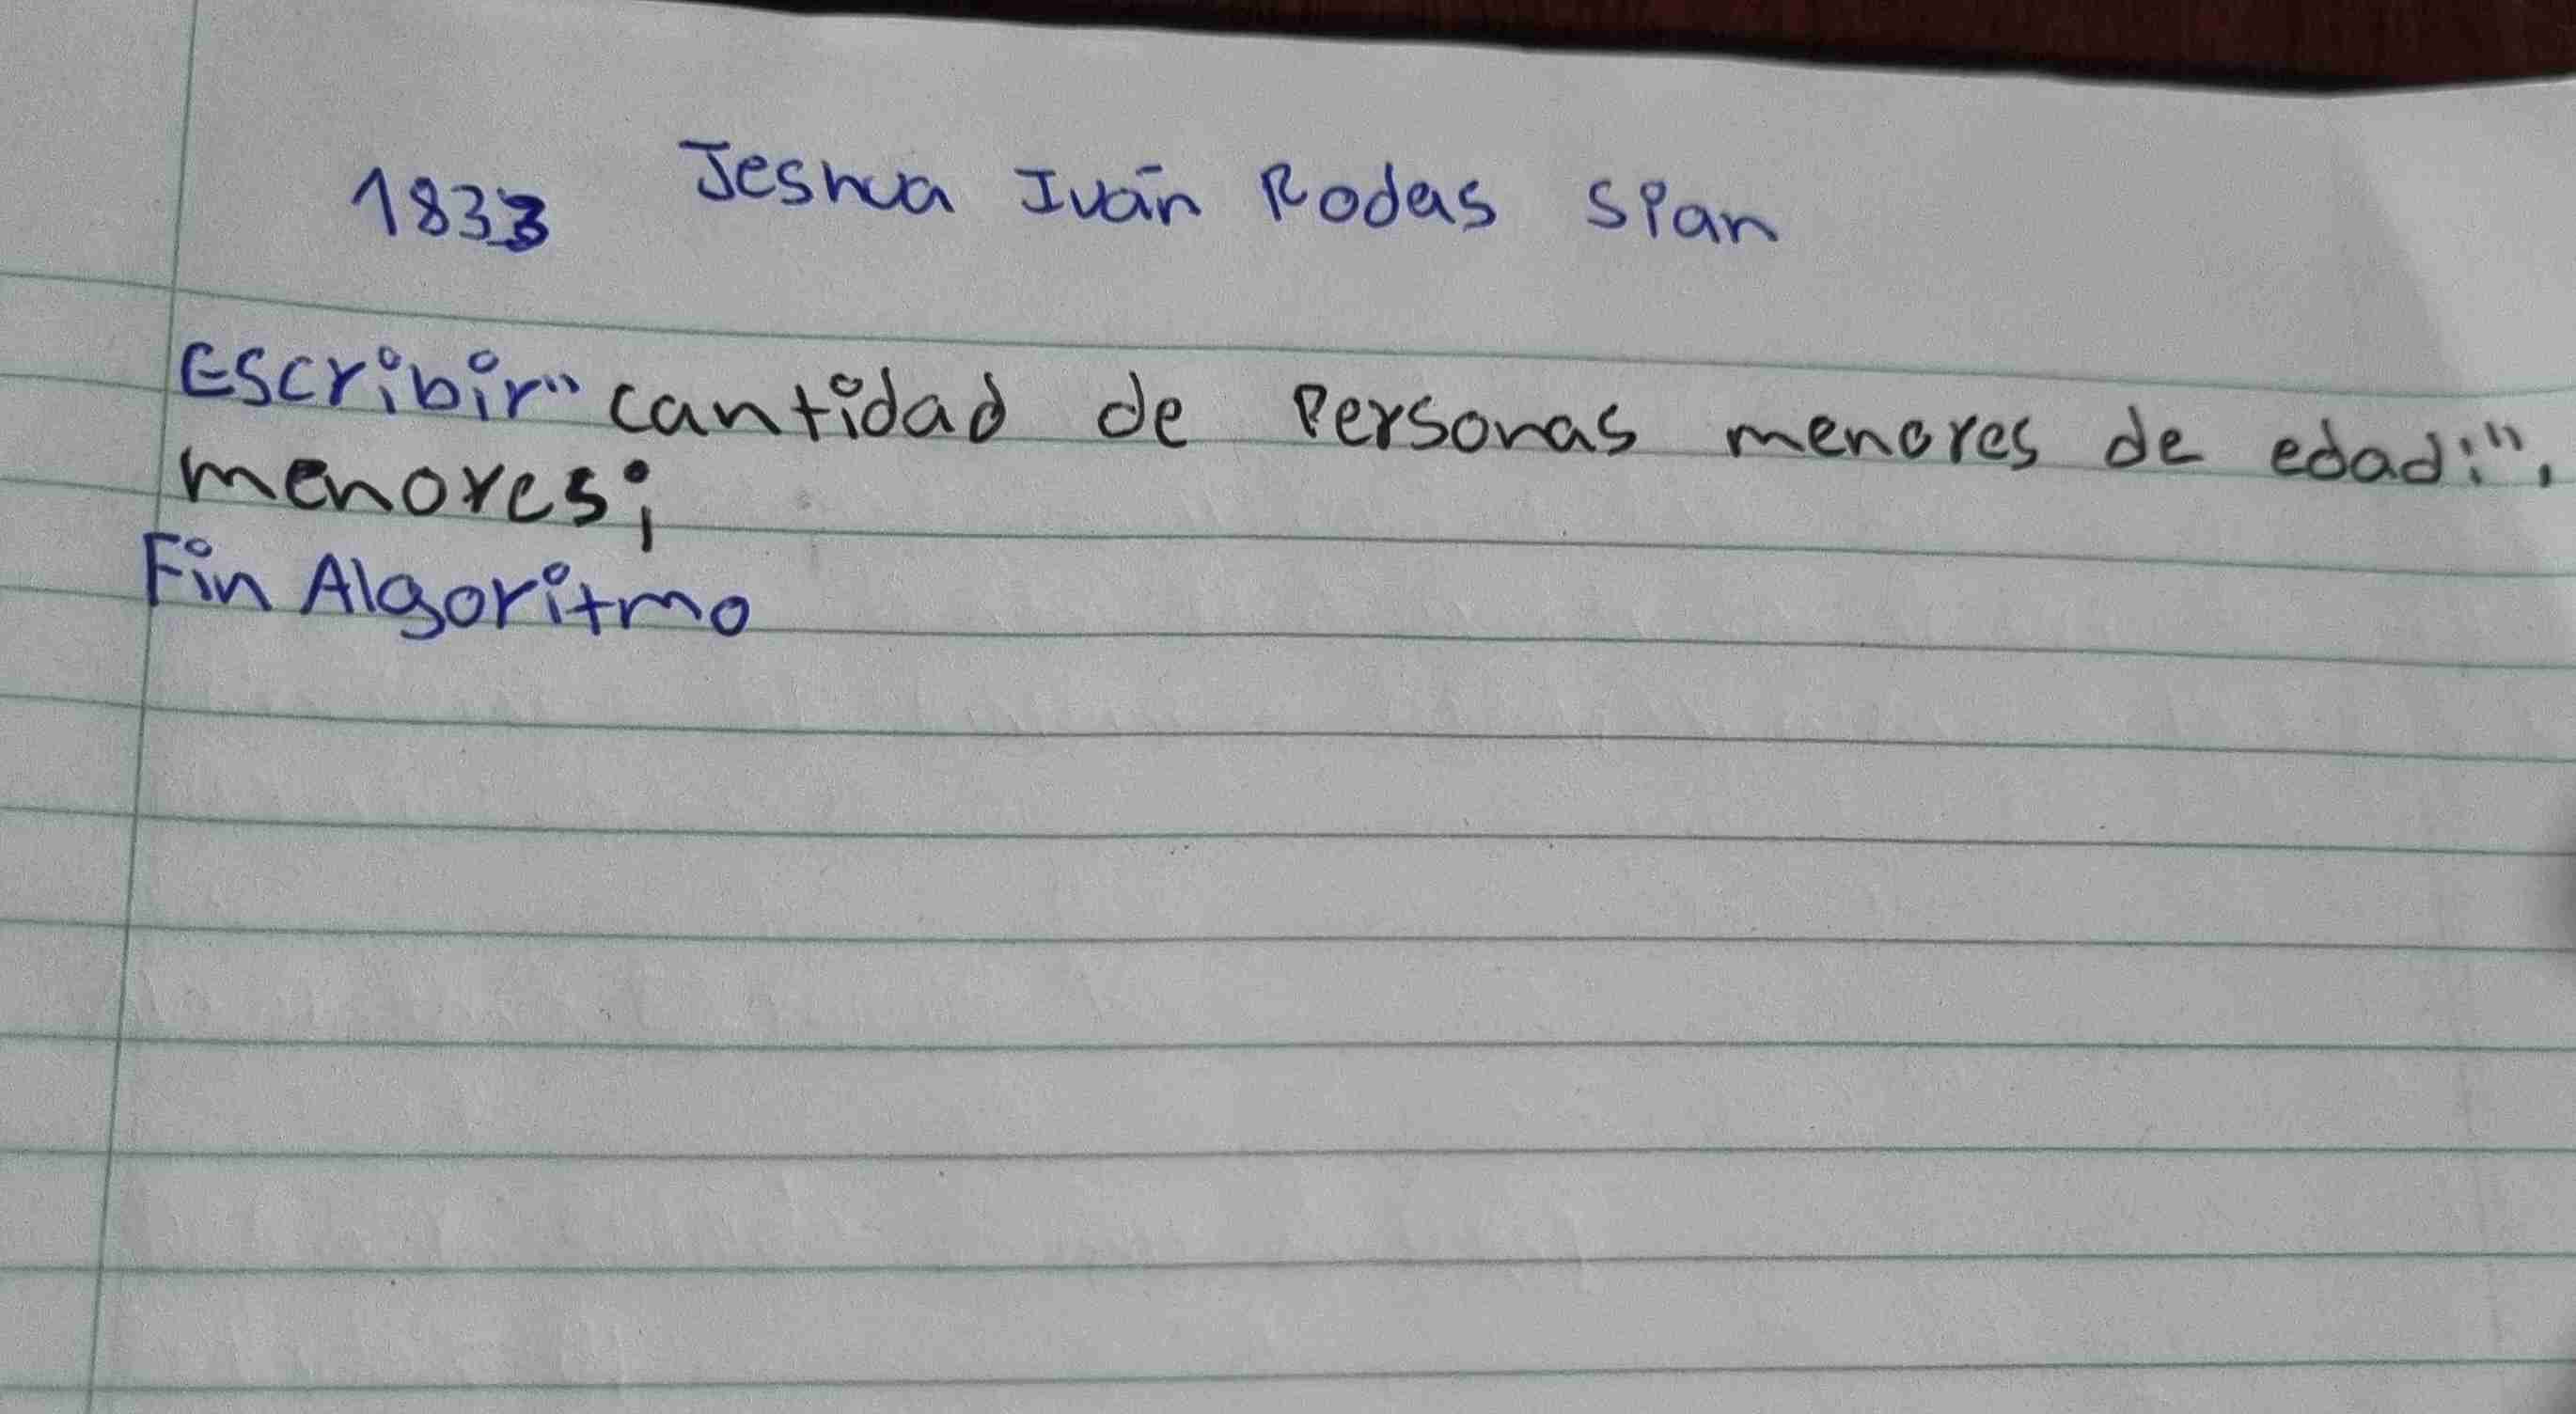 1833 Jeshua Iván Rodas Sian
Escribir" cantidad de Personas menores de edad:",
menores;
Fin Algoritmo